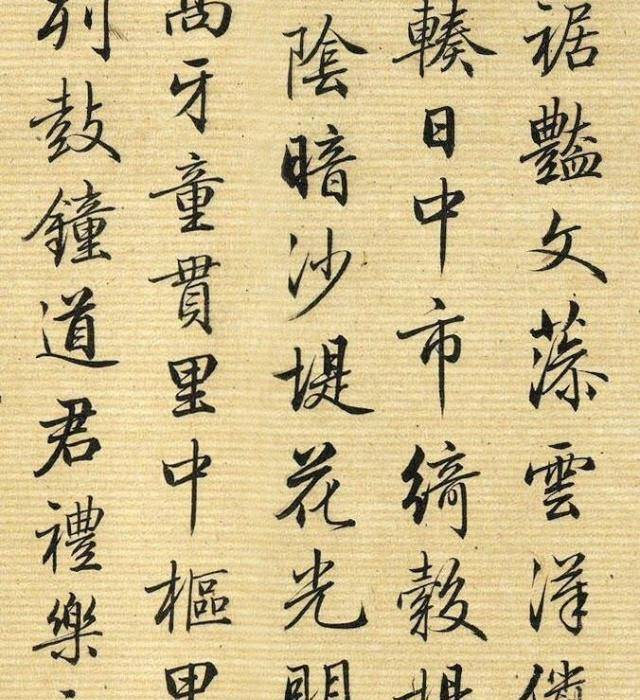 裾豔文藻雲
輳日中市綺縠
陰暗沙堤花光
牙童貫里中樞
列鼓鐘道君禮樂